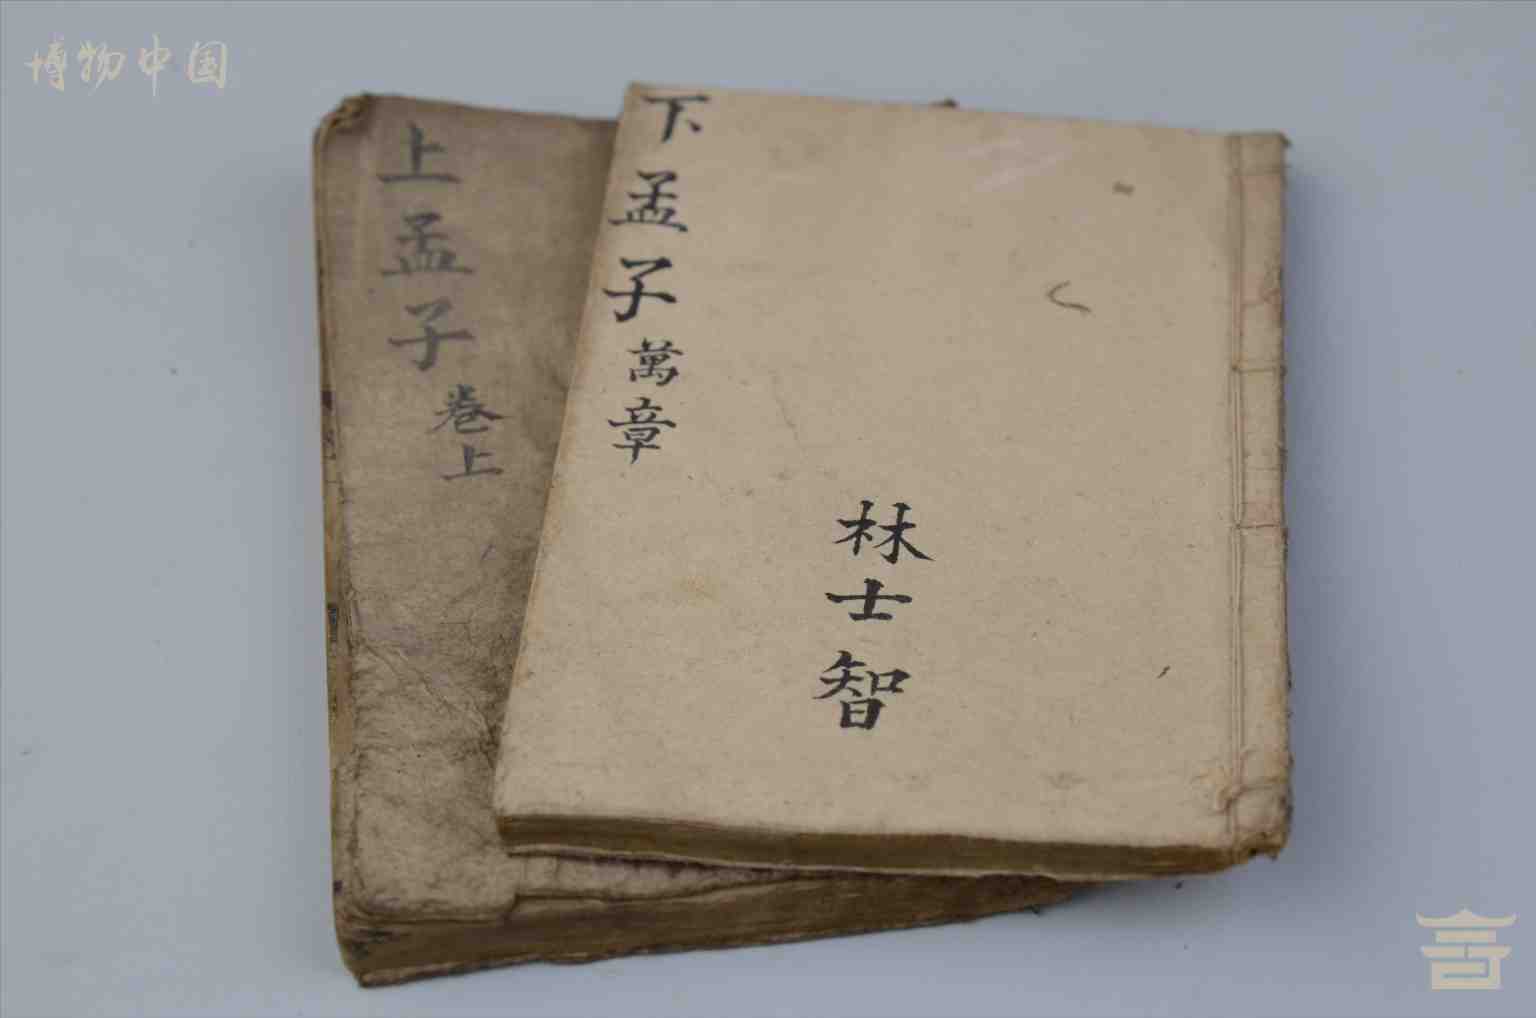 博物中国
上孟子
卷上
下孟子
萬章
林士智